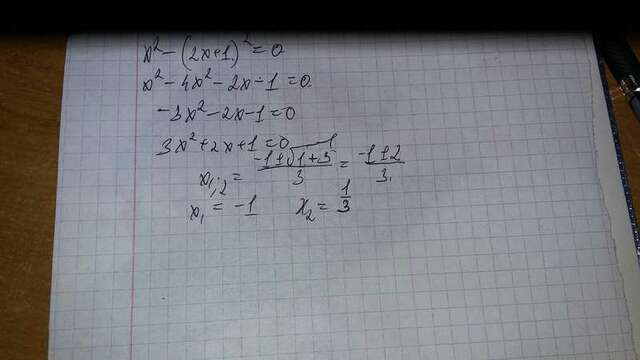 x² - (2x+1)² = 0
x² - 4x² - 2x - 1 = 0
-3x² - 2x - 1 = 0
3x² + 2x + 1 = 0
x₁;₂ = (-1±√(1+3))/3 = (-1±2)/3
x₁ = -1 x₂ = 1/3